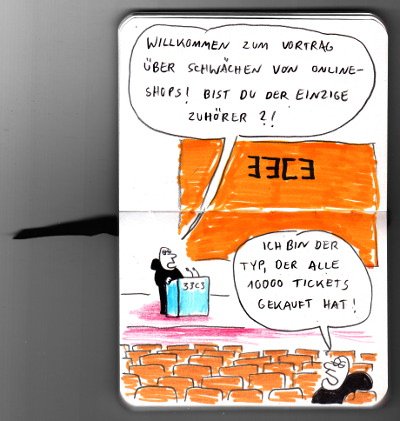 WILLKOMMEN ZUM VORTRAG
ÜBER SCHWÄCHEN VON ONLINE-
SHOPS! BIST DU DER EINZIGE
ZUHÖRER ?!
33C3
ICH BIN DER
TYP, DER ALLE
10000 TICKETS
GEKAUFT HAT!
33C3